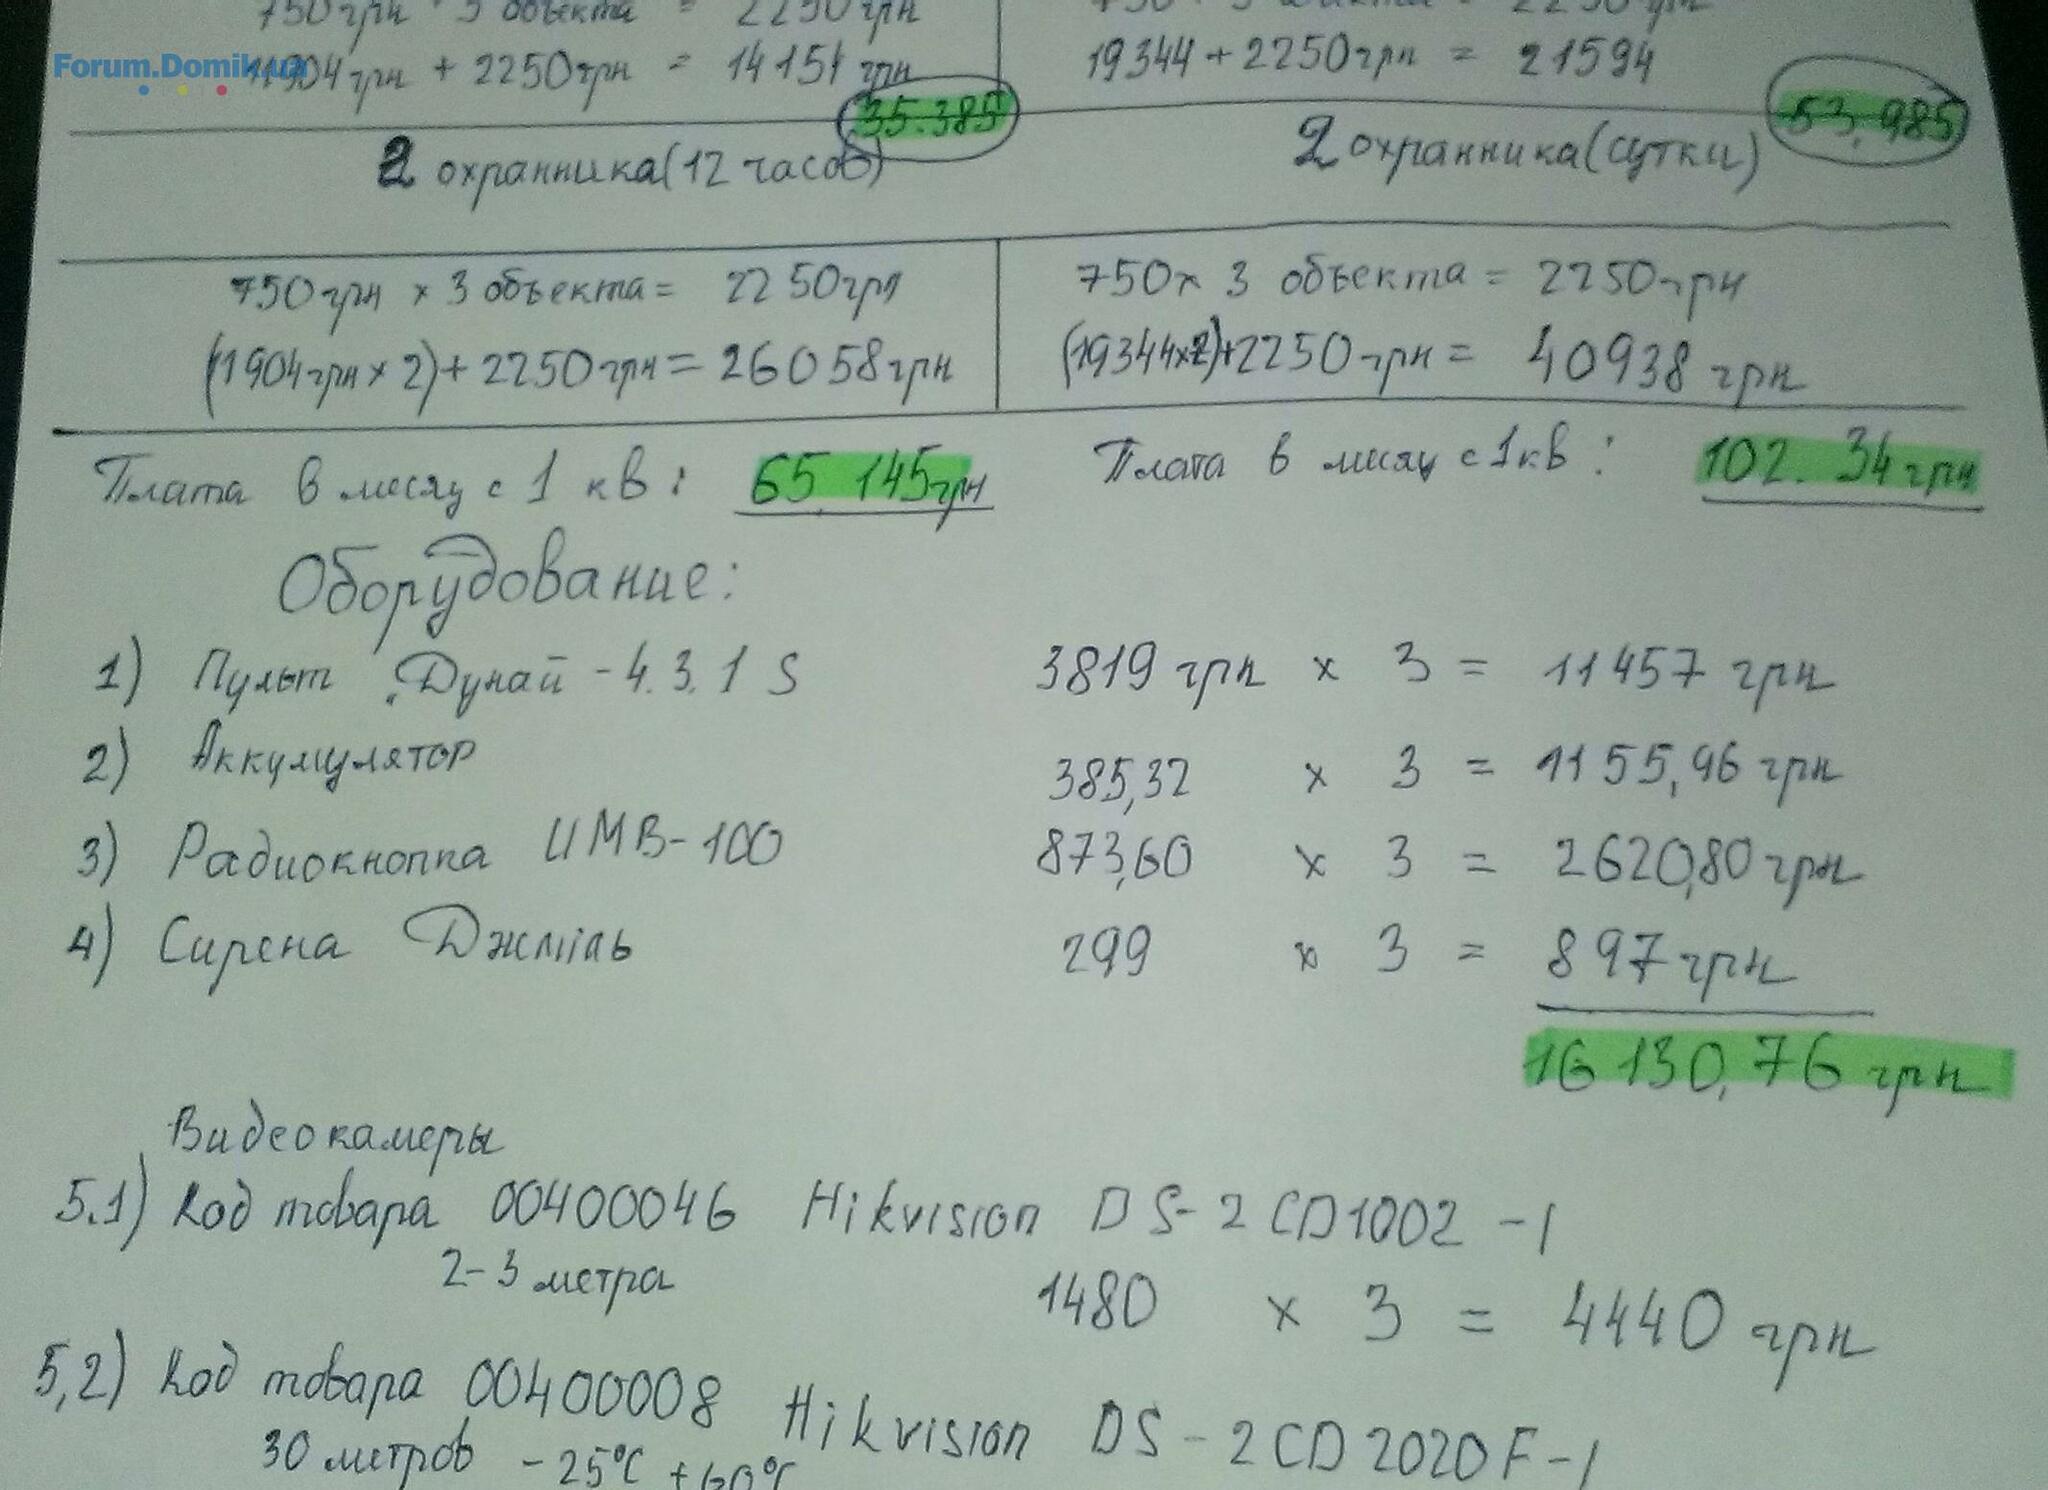 750грн × 3 объекта = 2250грн
Forum.Domik.ua
11904грн + 2250грн = 14154 грн
19344 + 2250грн = 21594
35.385
53,985
2 охранника(12 часов)
2 охранника(сутки)
750грн × 3 объекта = 2250грн
750× 3 объекта = 2250грн
(11904грн × 2) + 2250грн = 26058грн
(19344×2)+2250грн = 40938 грн
Плата в месяц с 1 кв: 65,145грн
Плата в месяц с 1кв: 102.34грн
Оборудование:
1) Пульт "Дунай - 4.3.1 S 3819 грн × 3 = 11457 грн
2) Аккумулятор 385,32 × 3 = 1155,96 грн
3) Радиокнопка ИМВ-100 873,60 × 3 = 2620,80 грн
4) Сирена Джміль 299 × 3 = 897грн
16130,76 грн
Видеокамеры
5.1) Код товара 00400046 Hikvision DS-2CD1002-I
2-3 метра 1480 × 3 = 4440 грн
5,2) Код товара 00400008 Hikvision DS-2CD2020F-I
30 метров -25°C +60°C